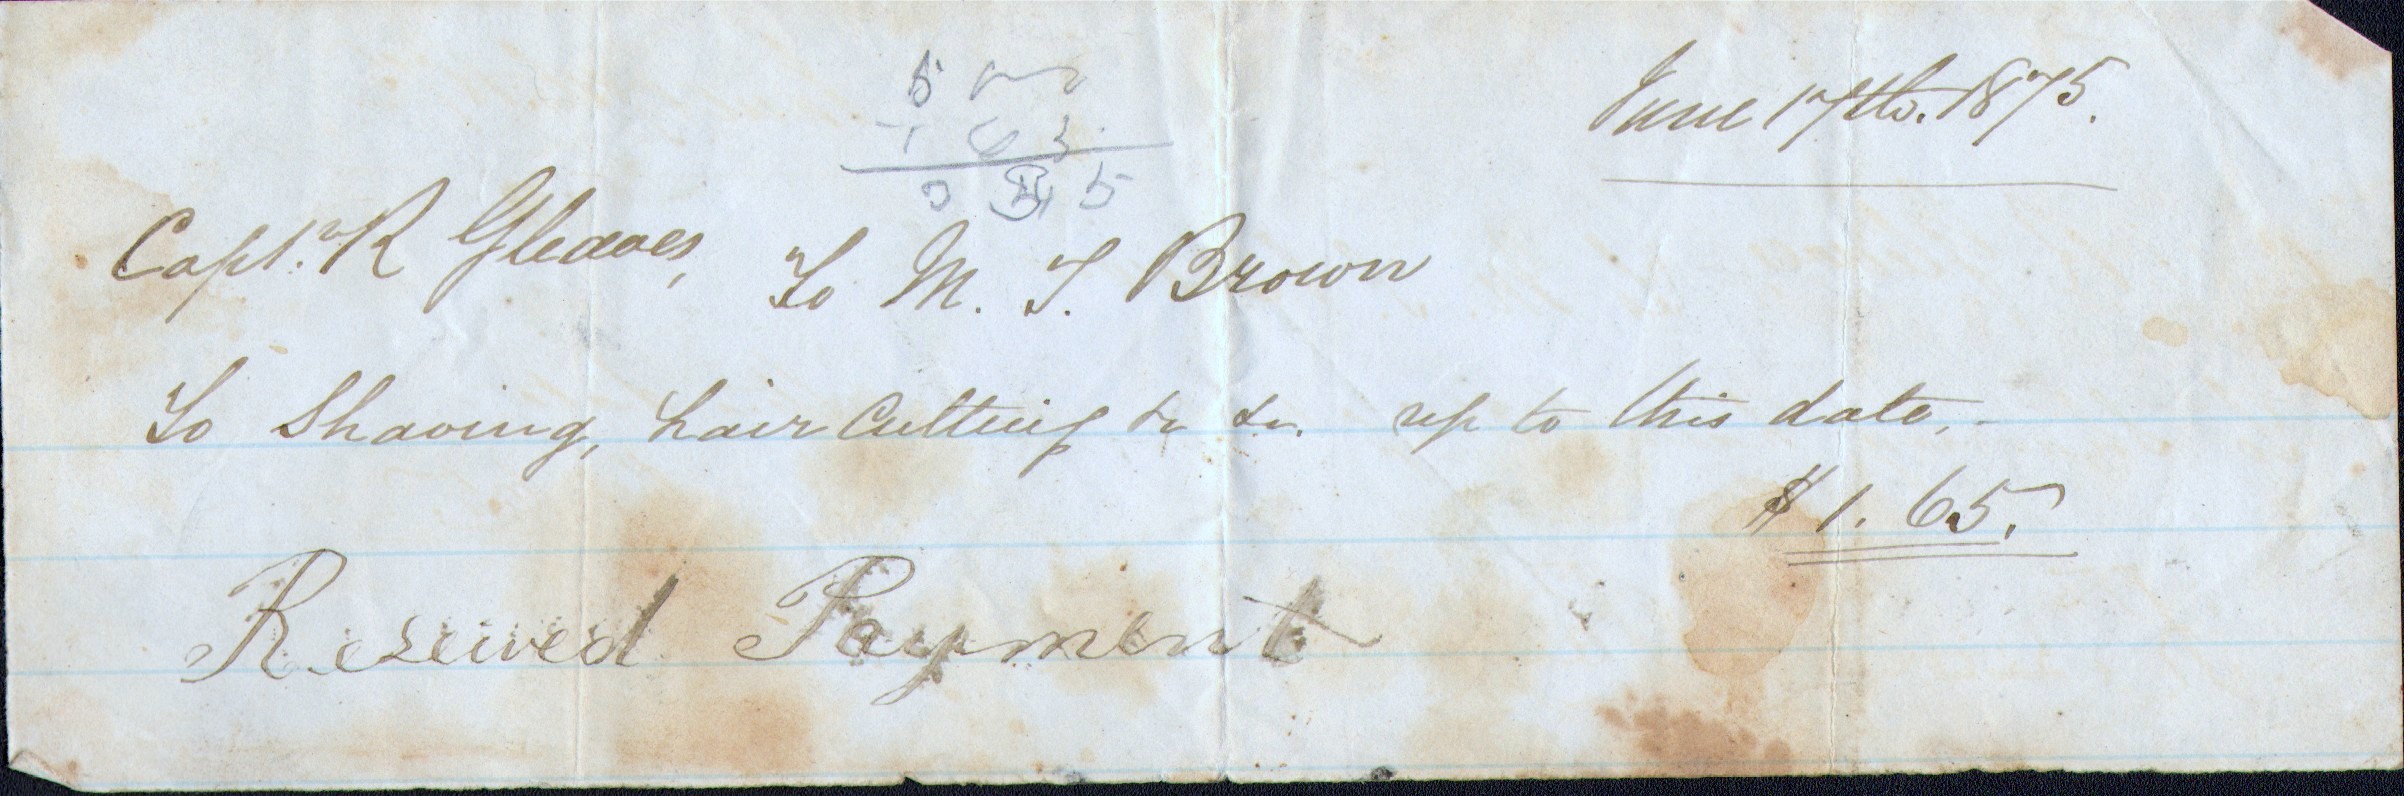 June 17th. 1875.
5 00
1 65
3 35
Capt. R Gleaves, To M. T. Brown
To Shaving, hair Cutting &c &c. up to this date,
$1.65.
Reseived Payment